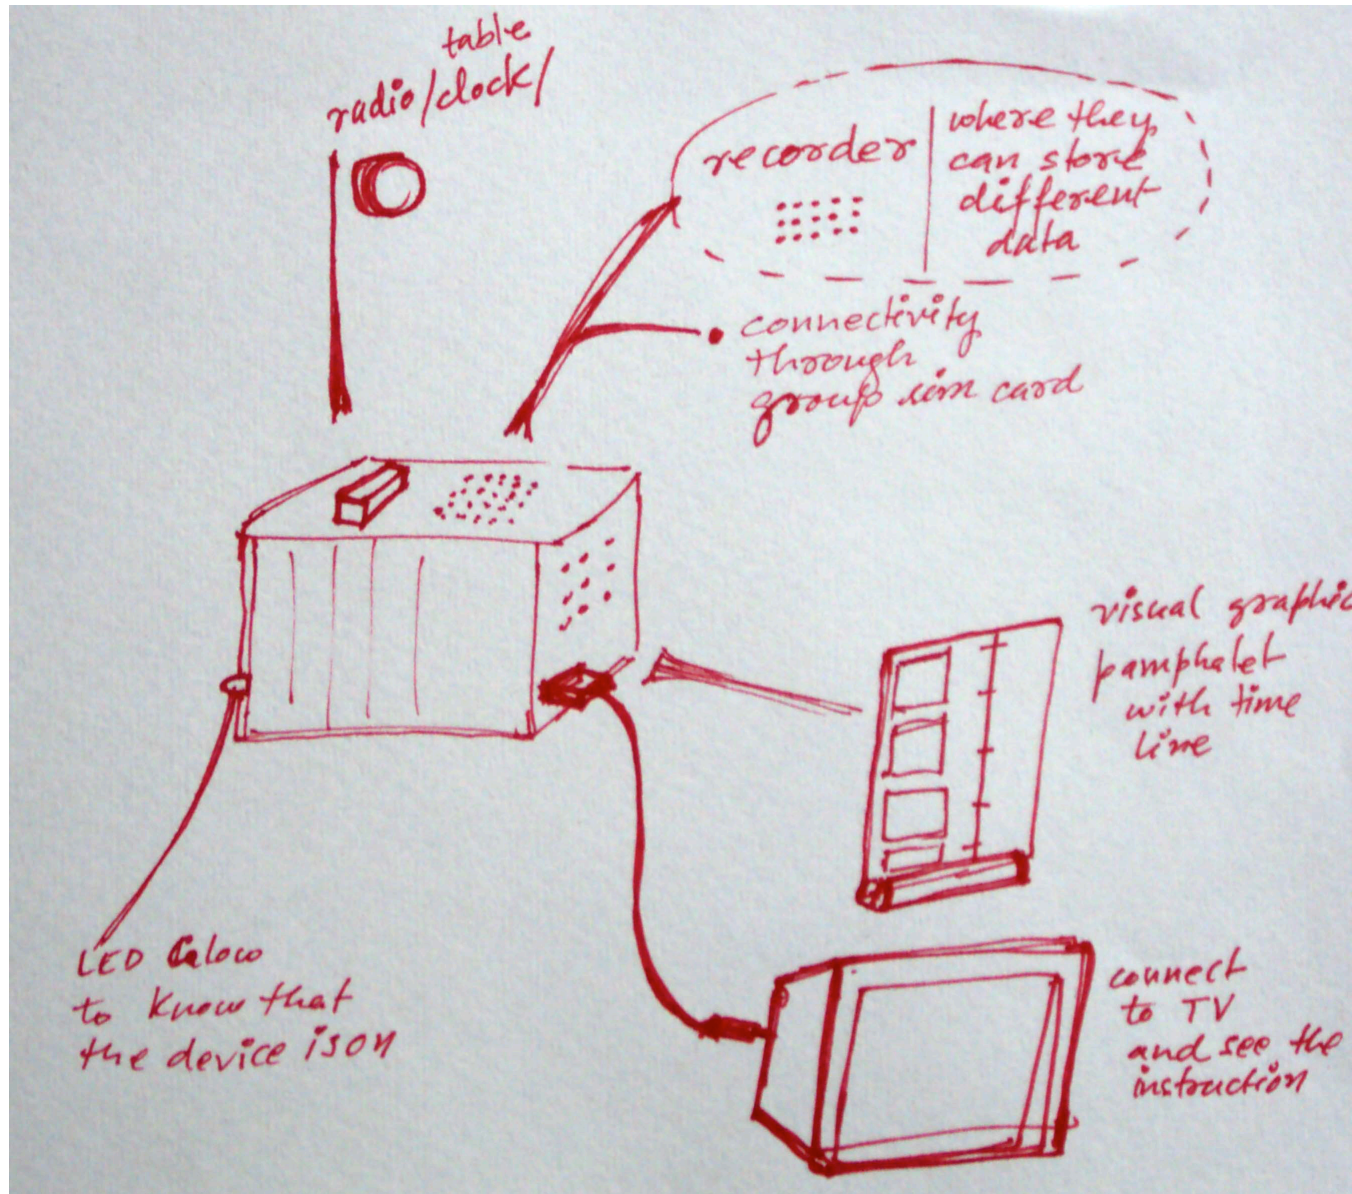 table
radio/clock/
recorder
where they
can store
different
data
connectivity
through
group sim card
visual graphic
pamphalet
with time
line
LED
to know that
the device is on
connect
to TV
and see the
instruction